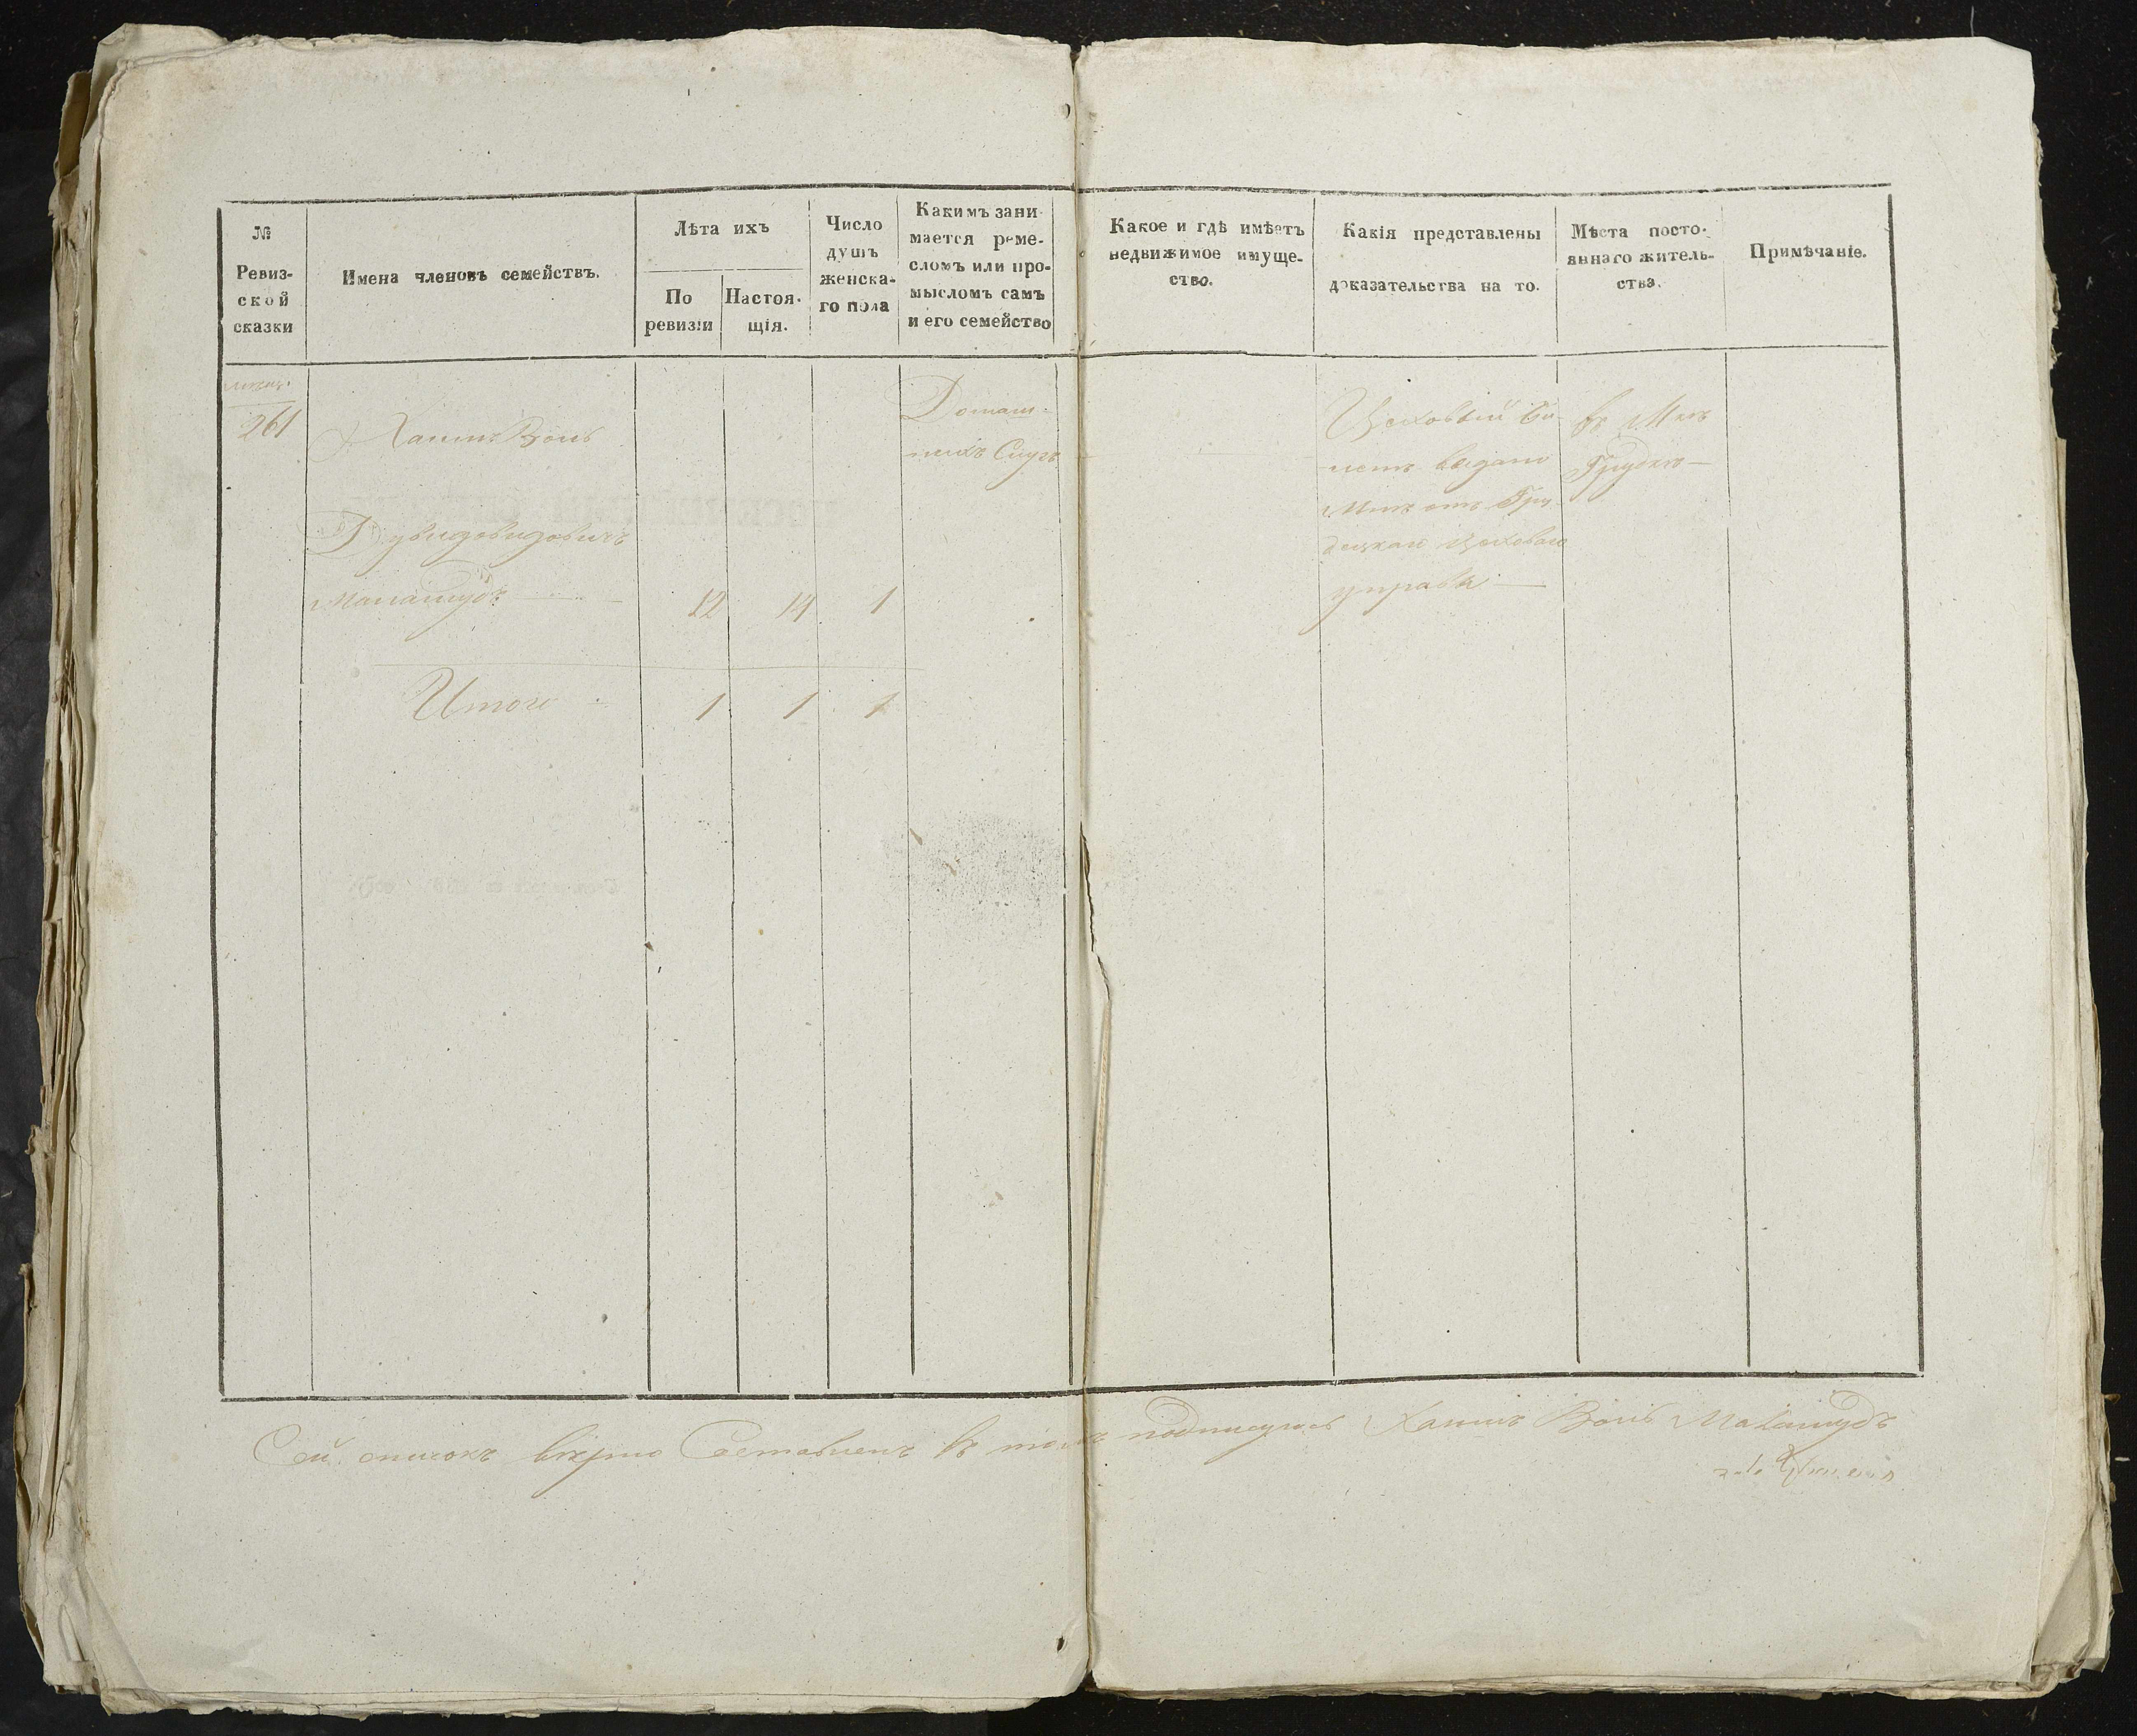 №
Ревиз-
ской
сказки
Имена членовъ семействъ.
Лѣта ихъ
По
ревизіи
Настоя-
щія.
Число
душъ
женска-
го пола
Какимъ зани-
мается реме-
сломъ или про-
мысломъ самъ
и его семейство
Какое и гдѣ имѣетъ
недвижимое имуще-
ство.
Какія представлены
доказательства на то.
Мѣста посто-
яннаго житель-
ства.
Примѣчаніе.
261
Хаимъ Воль
12 14 1
Итого 1 1 1
Домаш-
нихъ Слугъ
Цеховый би-
летъ выданъ
отъ Гру-
управы
въ
Грудкъ
Сей списокъ вѣрно Составленъ въ томъ подписуюсь Хаимъ Воль